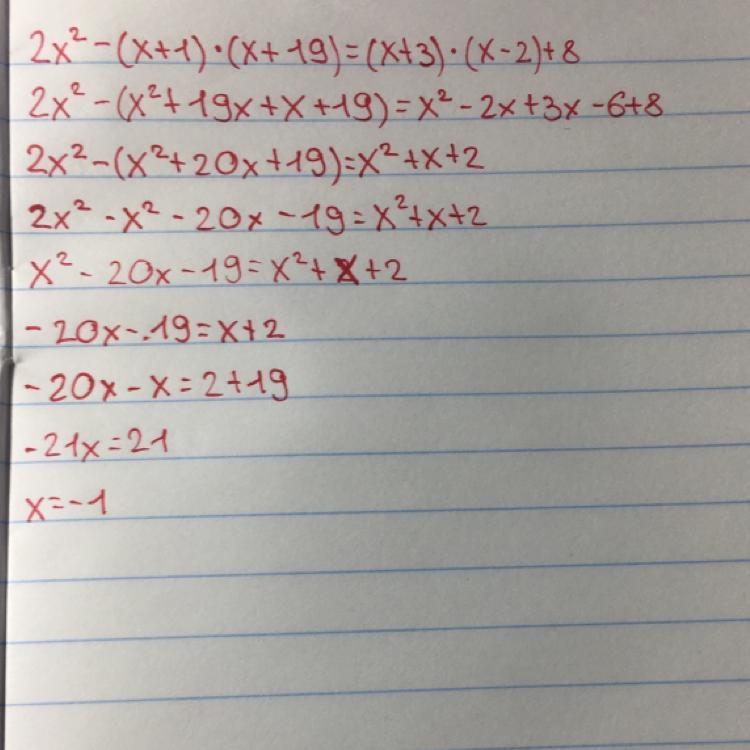 2x² - (x+1)·(x+19)=(x+3)·(x-2)+8
2x² - (x²+19x+x+19)=x²-2x+3x-6+8
2x²-(x²+20x+19)=x²+x+2
2x²-x²-20x-19=x²+x+2
x²-20x-19=x²+x+2
-20x-.19=x+2
-20x-x=2+19
-21x=21
x=-1